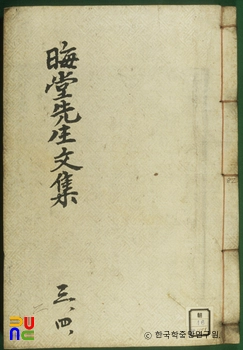 晦堂先生文集
三、四、
ⓒ 한국학중앙연구원